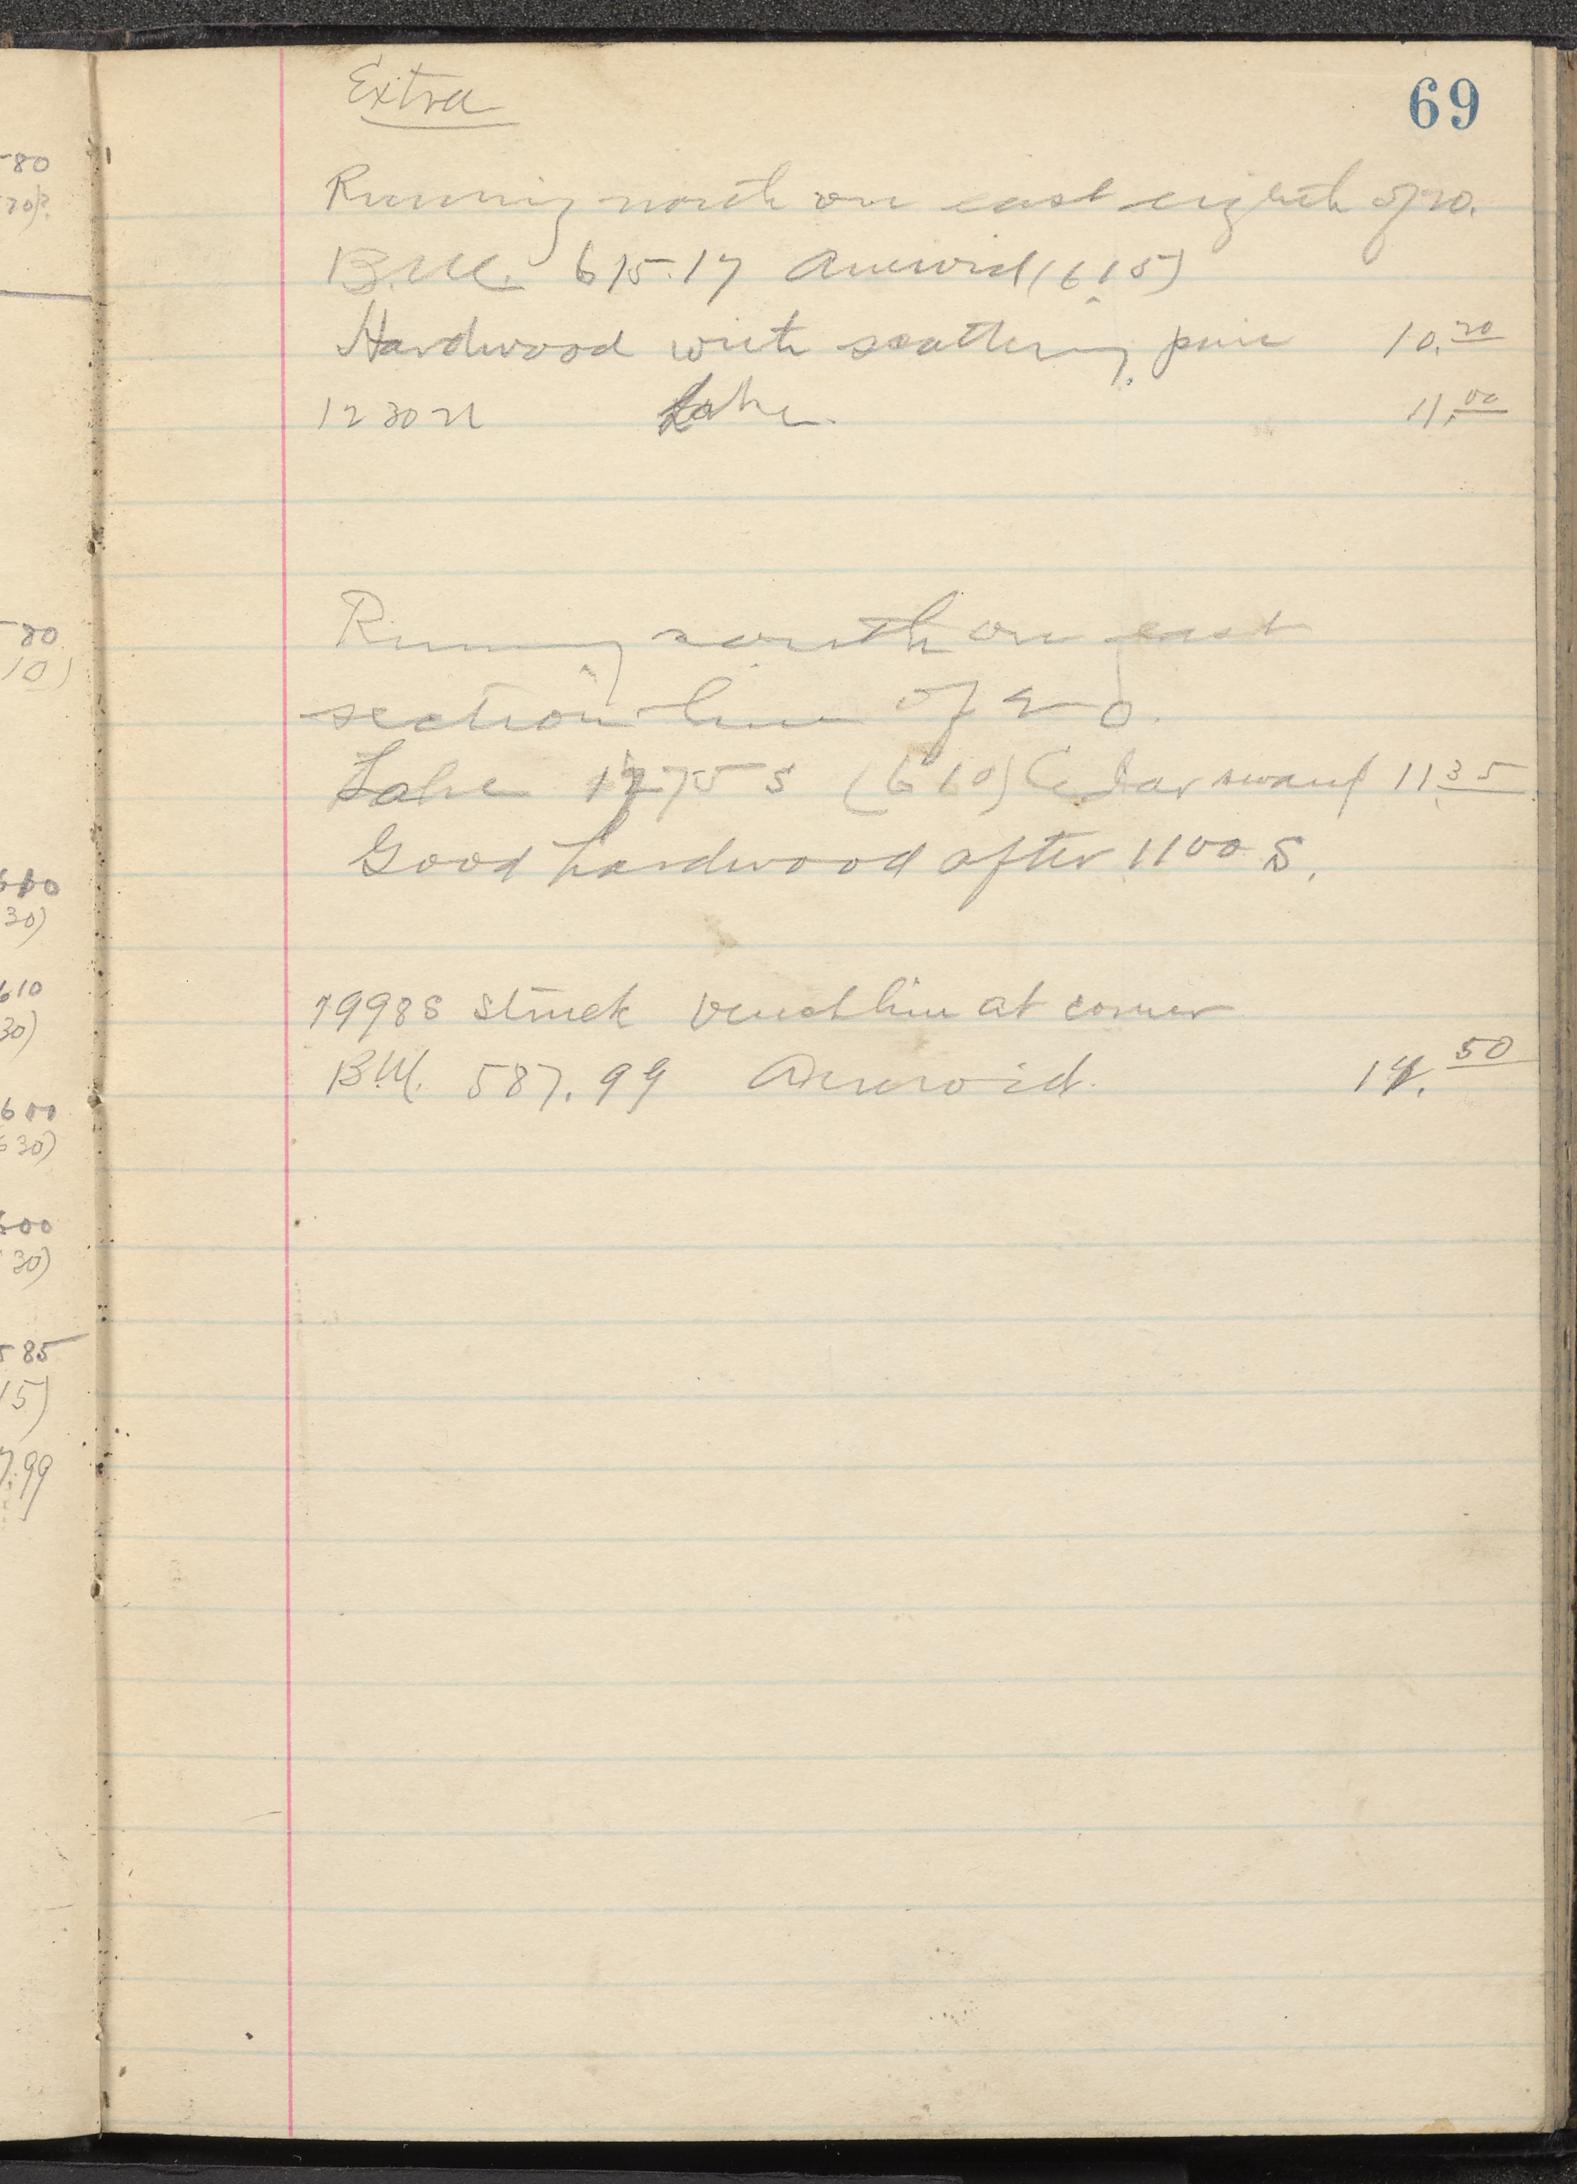 -80
70)?
80
10)
600
30)
610
30)
600
630)
600
30)
585
15)
7.99
69
Extra
Running north on east eighth of 20.
B.M. 615.17 Aneroid (615)
Hardwood with scattering pine 10.20
1230 N Lake 11.00
Running south on east
section line of 20.
Lake 1275 S (610) Cedar swamp 11.35
Good hardwood after 1100 S.
1998 S struck bench line at corner
B.M. 587.99 Aneroid. .50